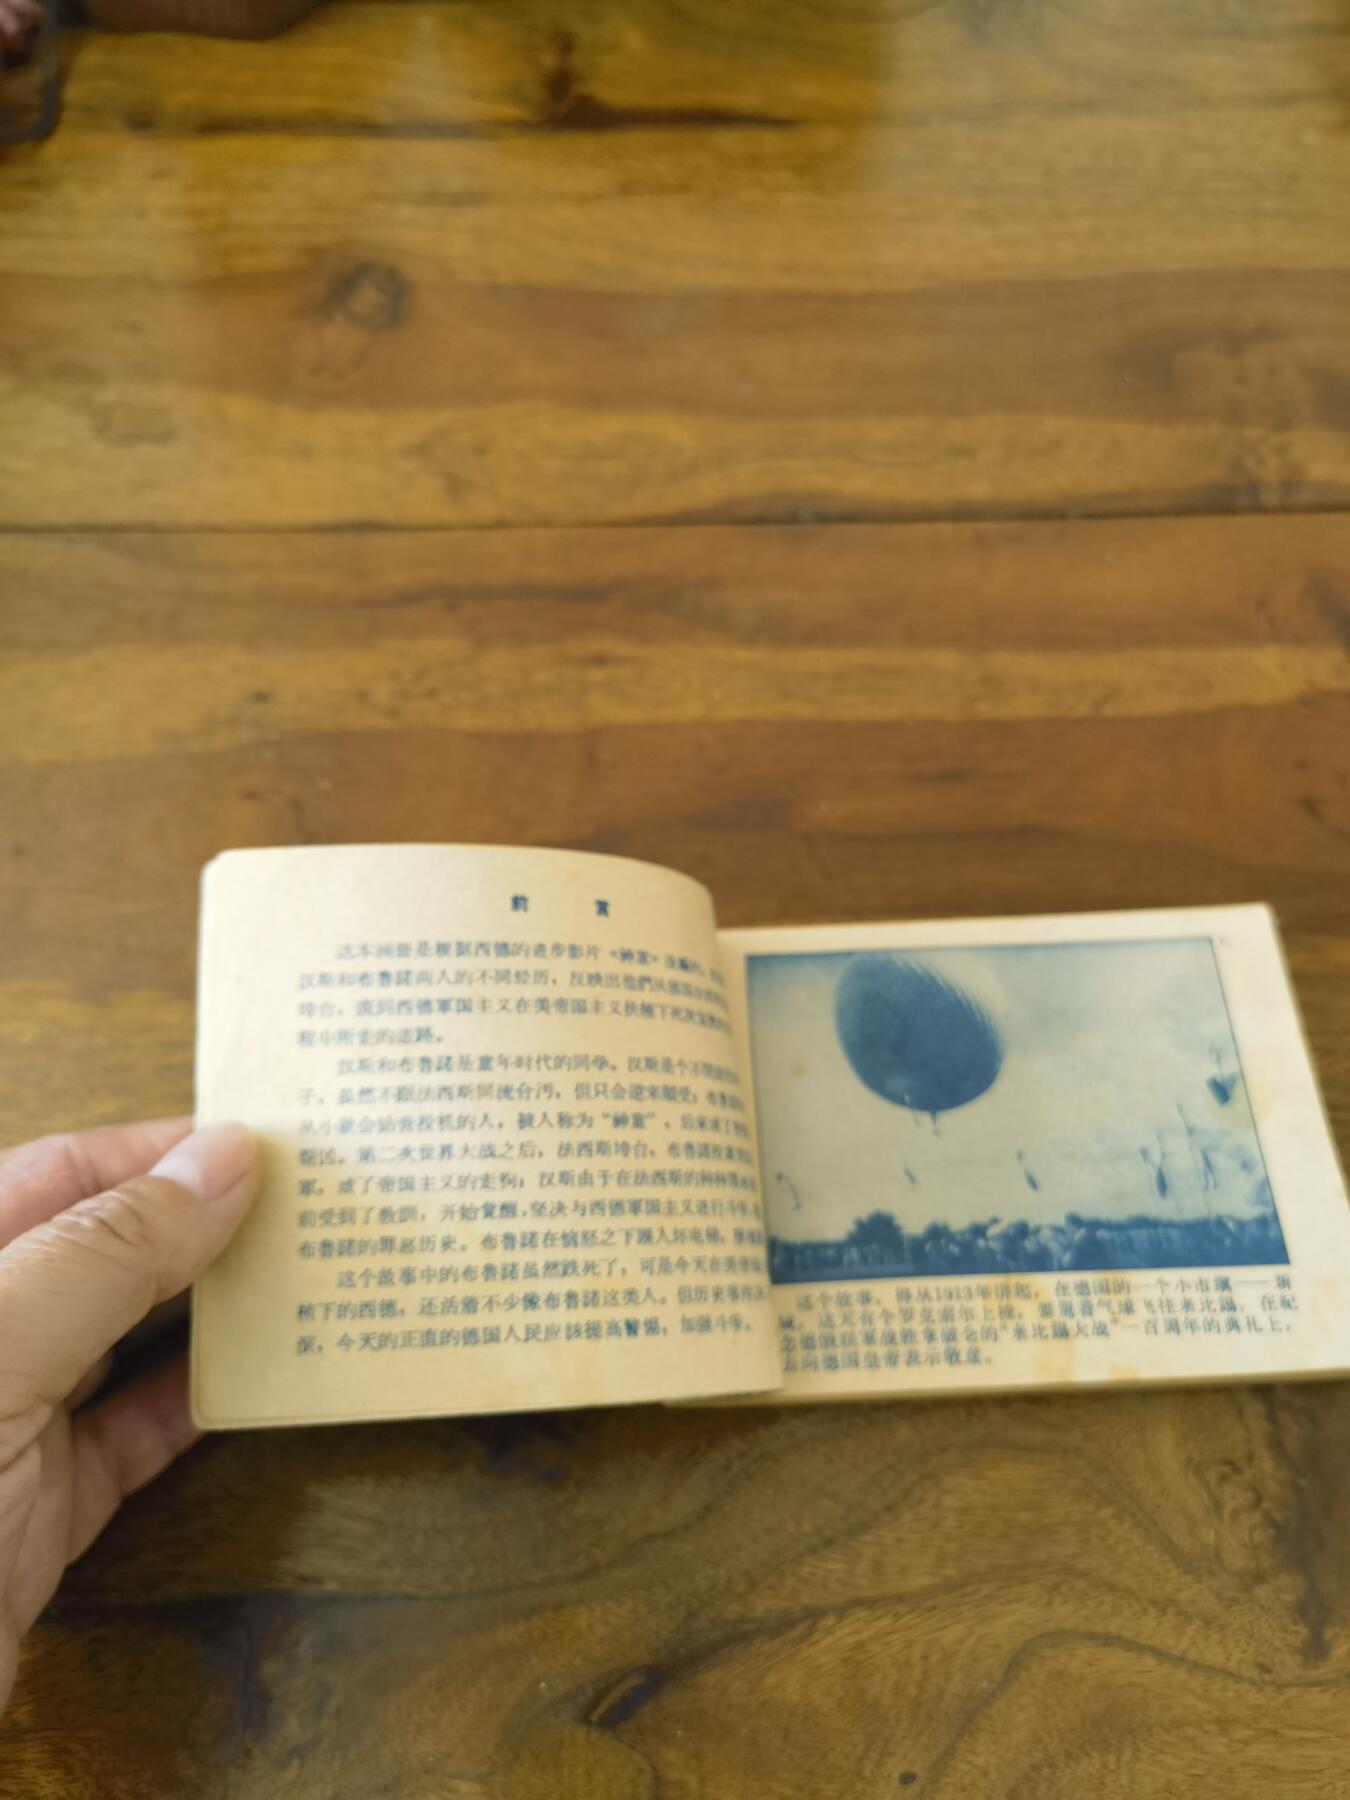 前 言
这本画册是根据西德的进步影片“神童”
汉斯和布魯諾两人的不同经历，反映出他們从德国
垮台，直到西德軍国主义在美帝国主义扶植下死灰
程中所走的道路。
汉斯和布魯諾是童年时代的同学。汉斯是个不
子，虽然不跟法西斯同流合污，但只会逆来顺受；布魯
从小就会钻营投机的人，被人称为“神童”，后来成了
帮凶。第二次世界大战之后，法西斯垮台，布魯諾
軍，成了帝国主义的走狗；汉斯由于在法西斯的种种
前受到了教訓，开始覚醒，坚决与西德軍国主义进行斗爭，
布魯諾的罪恶历史。布魯諾在愤怒之下踩入坏电梯，
这个故事中的布魯諾虽然跌死了，可是今天在美帝
植下的西德，还活着不少像布魯諾这类人。但历史
演，今天的正直的德国人民应該提高警惕，加强斗爭。
这个故事，得从1913年讲起，在德国的一个小市鎭——新
城，这天有个罗克索尔上校，要駕着气球飞往来比錫，在紀
念德俄联軍战胜拿破仑的“来比錫大战”一百周年的典礼上，
去向德国皇帝表示敬意。